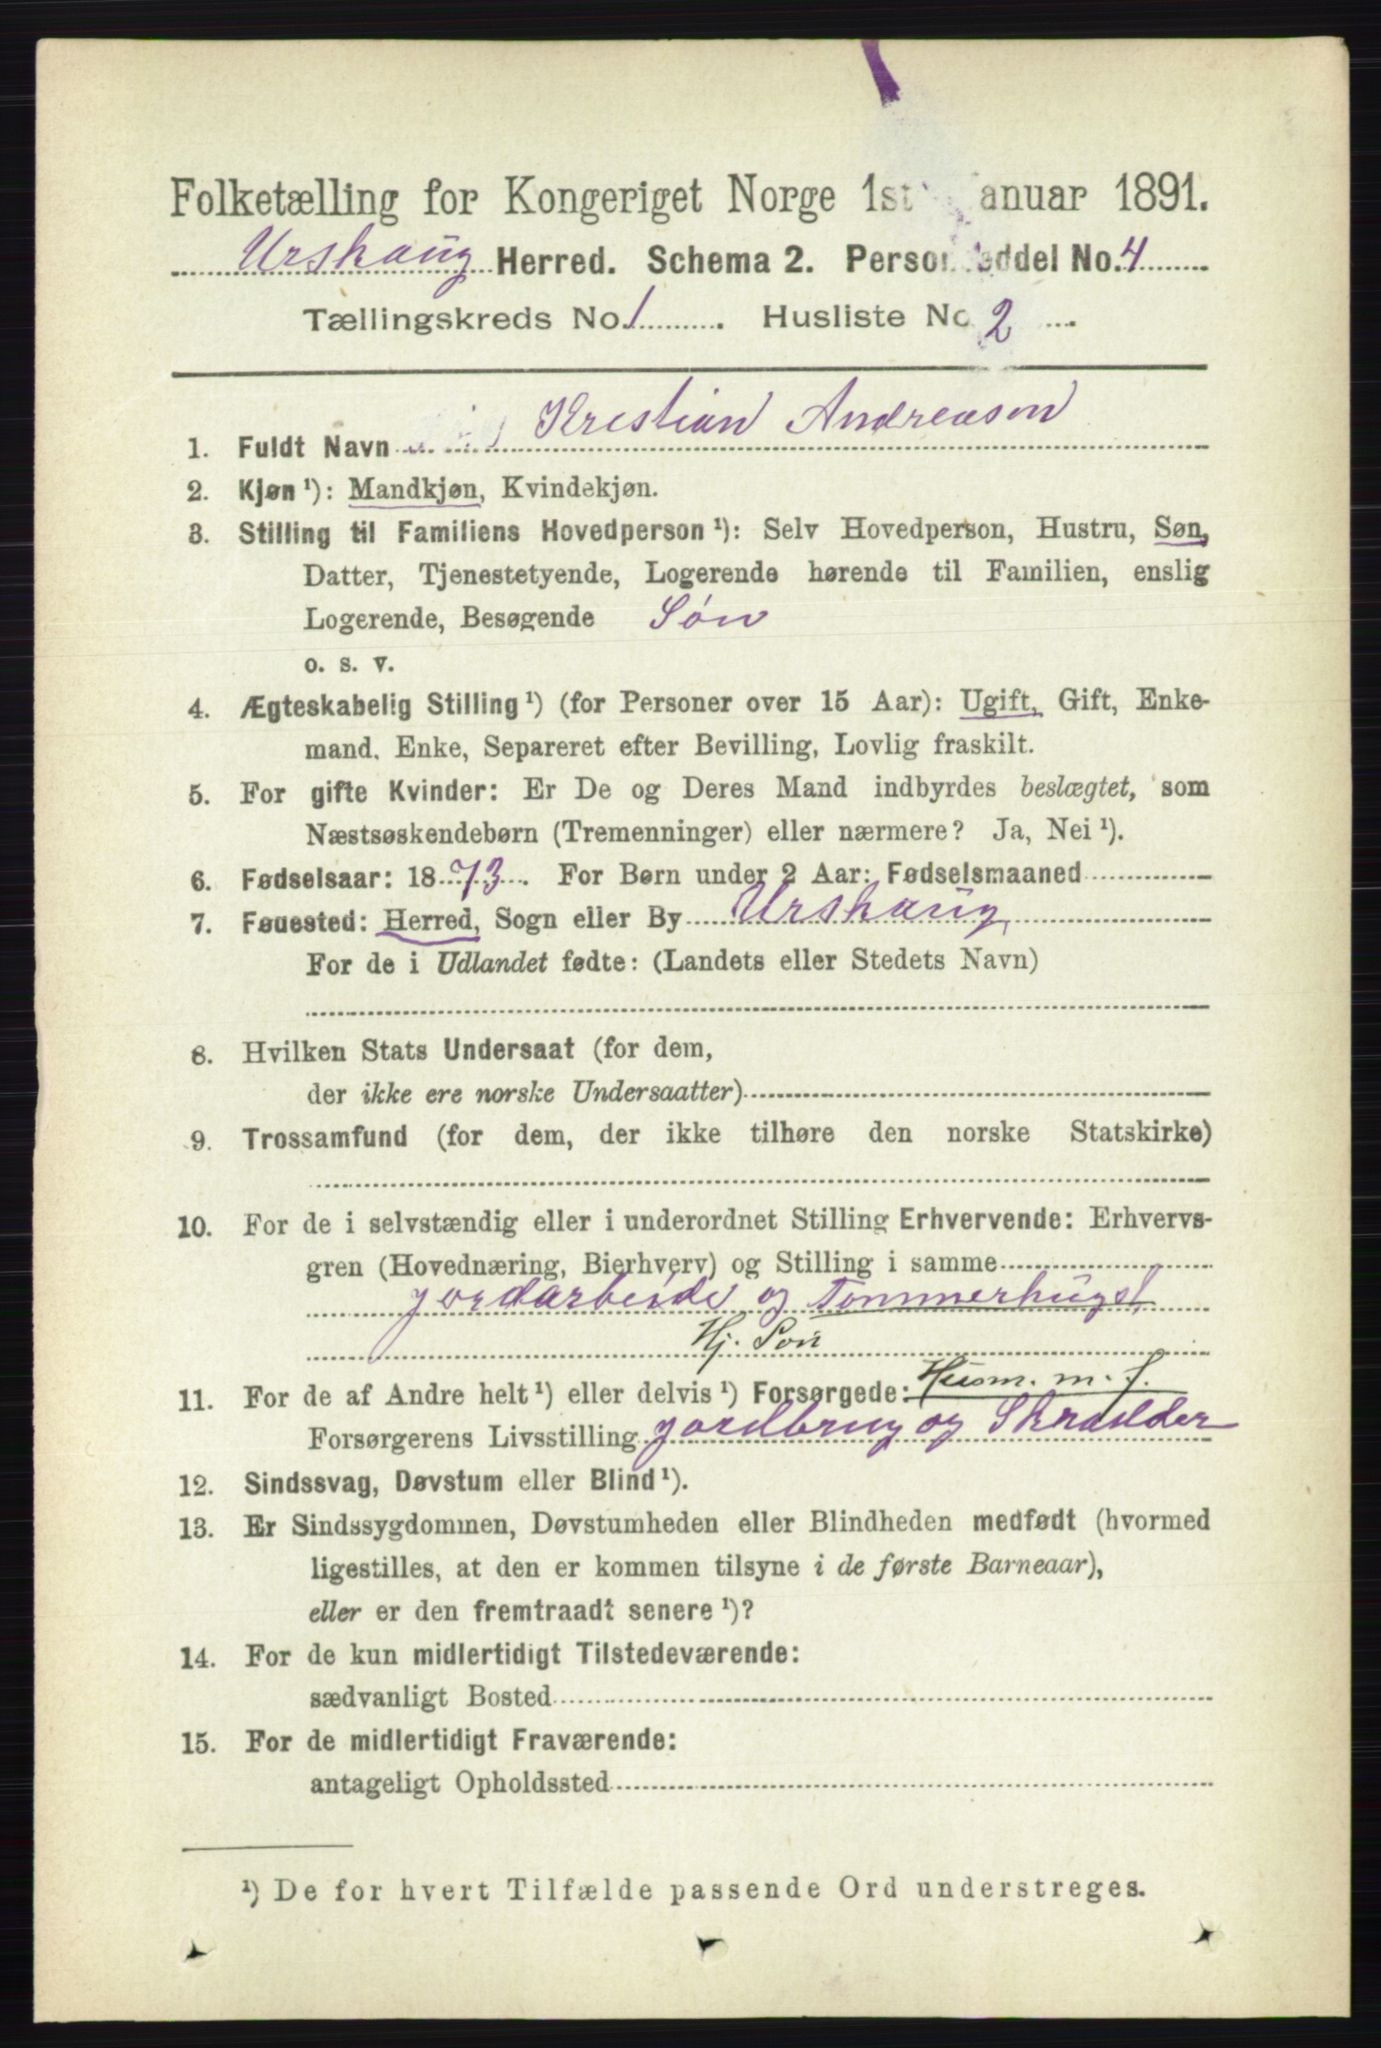 Folketælling for Kongeriget Norge 1st anuar 1891.
Urskaug Herred. Schema 2. Person eddel No. 4
Tællingskreds No. 1 Husliste No 2
1. Fuldt Navn Kristian Andreasen
2. Kjøn ¹): Mandkjøn, Kvindekjøn.
3. Stilling til Familiens Hovedperson ¹): Selv Hovedperson, Hustru, Søn,
Datter, Tjenestetyende, Logerende hørende til Familien, enslig
Logerende, Besøgende Søn
o. s. v.
4. Ægteskabelig Stilling ¹) (for Personer over 15 Aar): Ugift, Gift, Enke-
mand, Enke, Separeret efter Bevilling, Lovlig fraskilt.
5. For gifte Kvinder: Er De og Deres Mand indbyrdes beslægtet, som
Næstsøskendebørn (Tremenninger) eller nærmere? Ja, Nei ¹).
6. Fødselsaar: 1873. For Børn under 2 Aar: Fødselsmaaned
7. Føuested: Herred, Sogn eller By Urskaug
For de i Udlandet fødte: (Landets eller Stedets Navn)
8. Hvilken Stats Undersaat (for dem,
der ikke ere norske Undersaatter)
9. Trossamfund (for dem, der ikke tilhøre den norske Statskirke)
10. For de i selvstændig eller i underordnet Stilling Erhvervende: Erhvervs-
gren (Hovednæring, Bierhverv) og Stilling i samme
jordarbeide og Tømmerhugst
Hj. Søn
11. For de af Andre helt ¹) eller delvis ¹) Forsørgede: Husm. m. J.
Forsørgerens Livsstilling jordbrug og Skrædder
12. Sindssvag, Døvstum eller Blind ¹).
13. Er Sindssygdommen, Døvstumheden eller Blindheden medfødt (hvormed
ligestilles, at den er kommen tilsyne i de første Barneaar),
eller er den fremtraadt senere ¹)?
14. For de kun midlertidigt Tilstedeværende:
sædvanligt Bosted
15. For de midlertidigt Fraværende:
antageligt Opholdssted
¹) De for hvert Tilfælde passende Ord understreges.